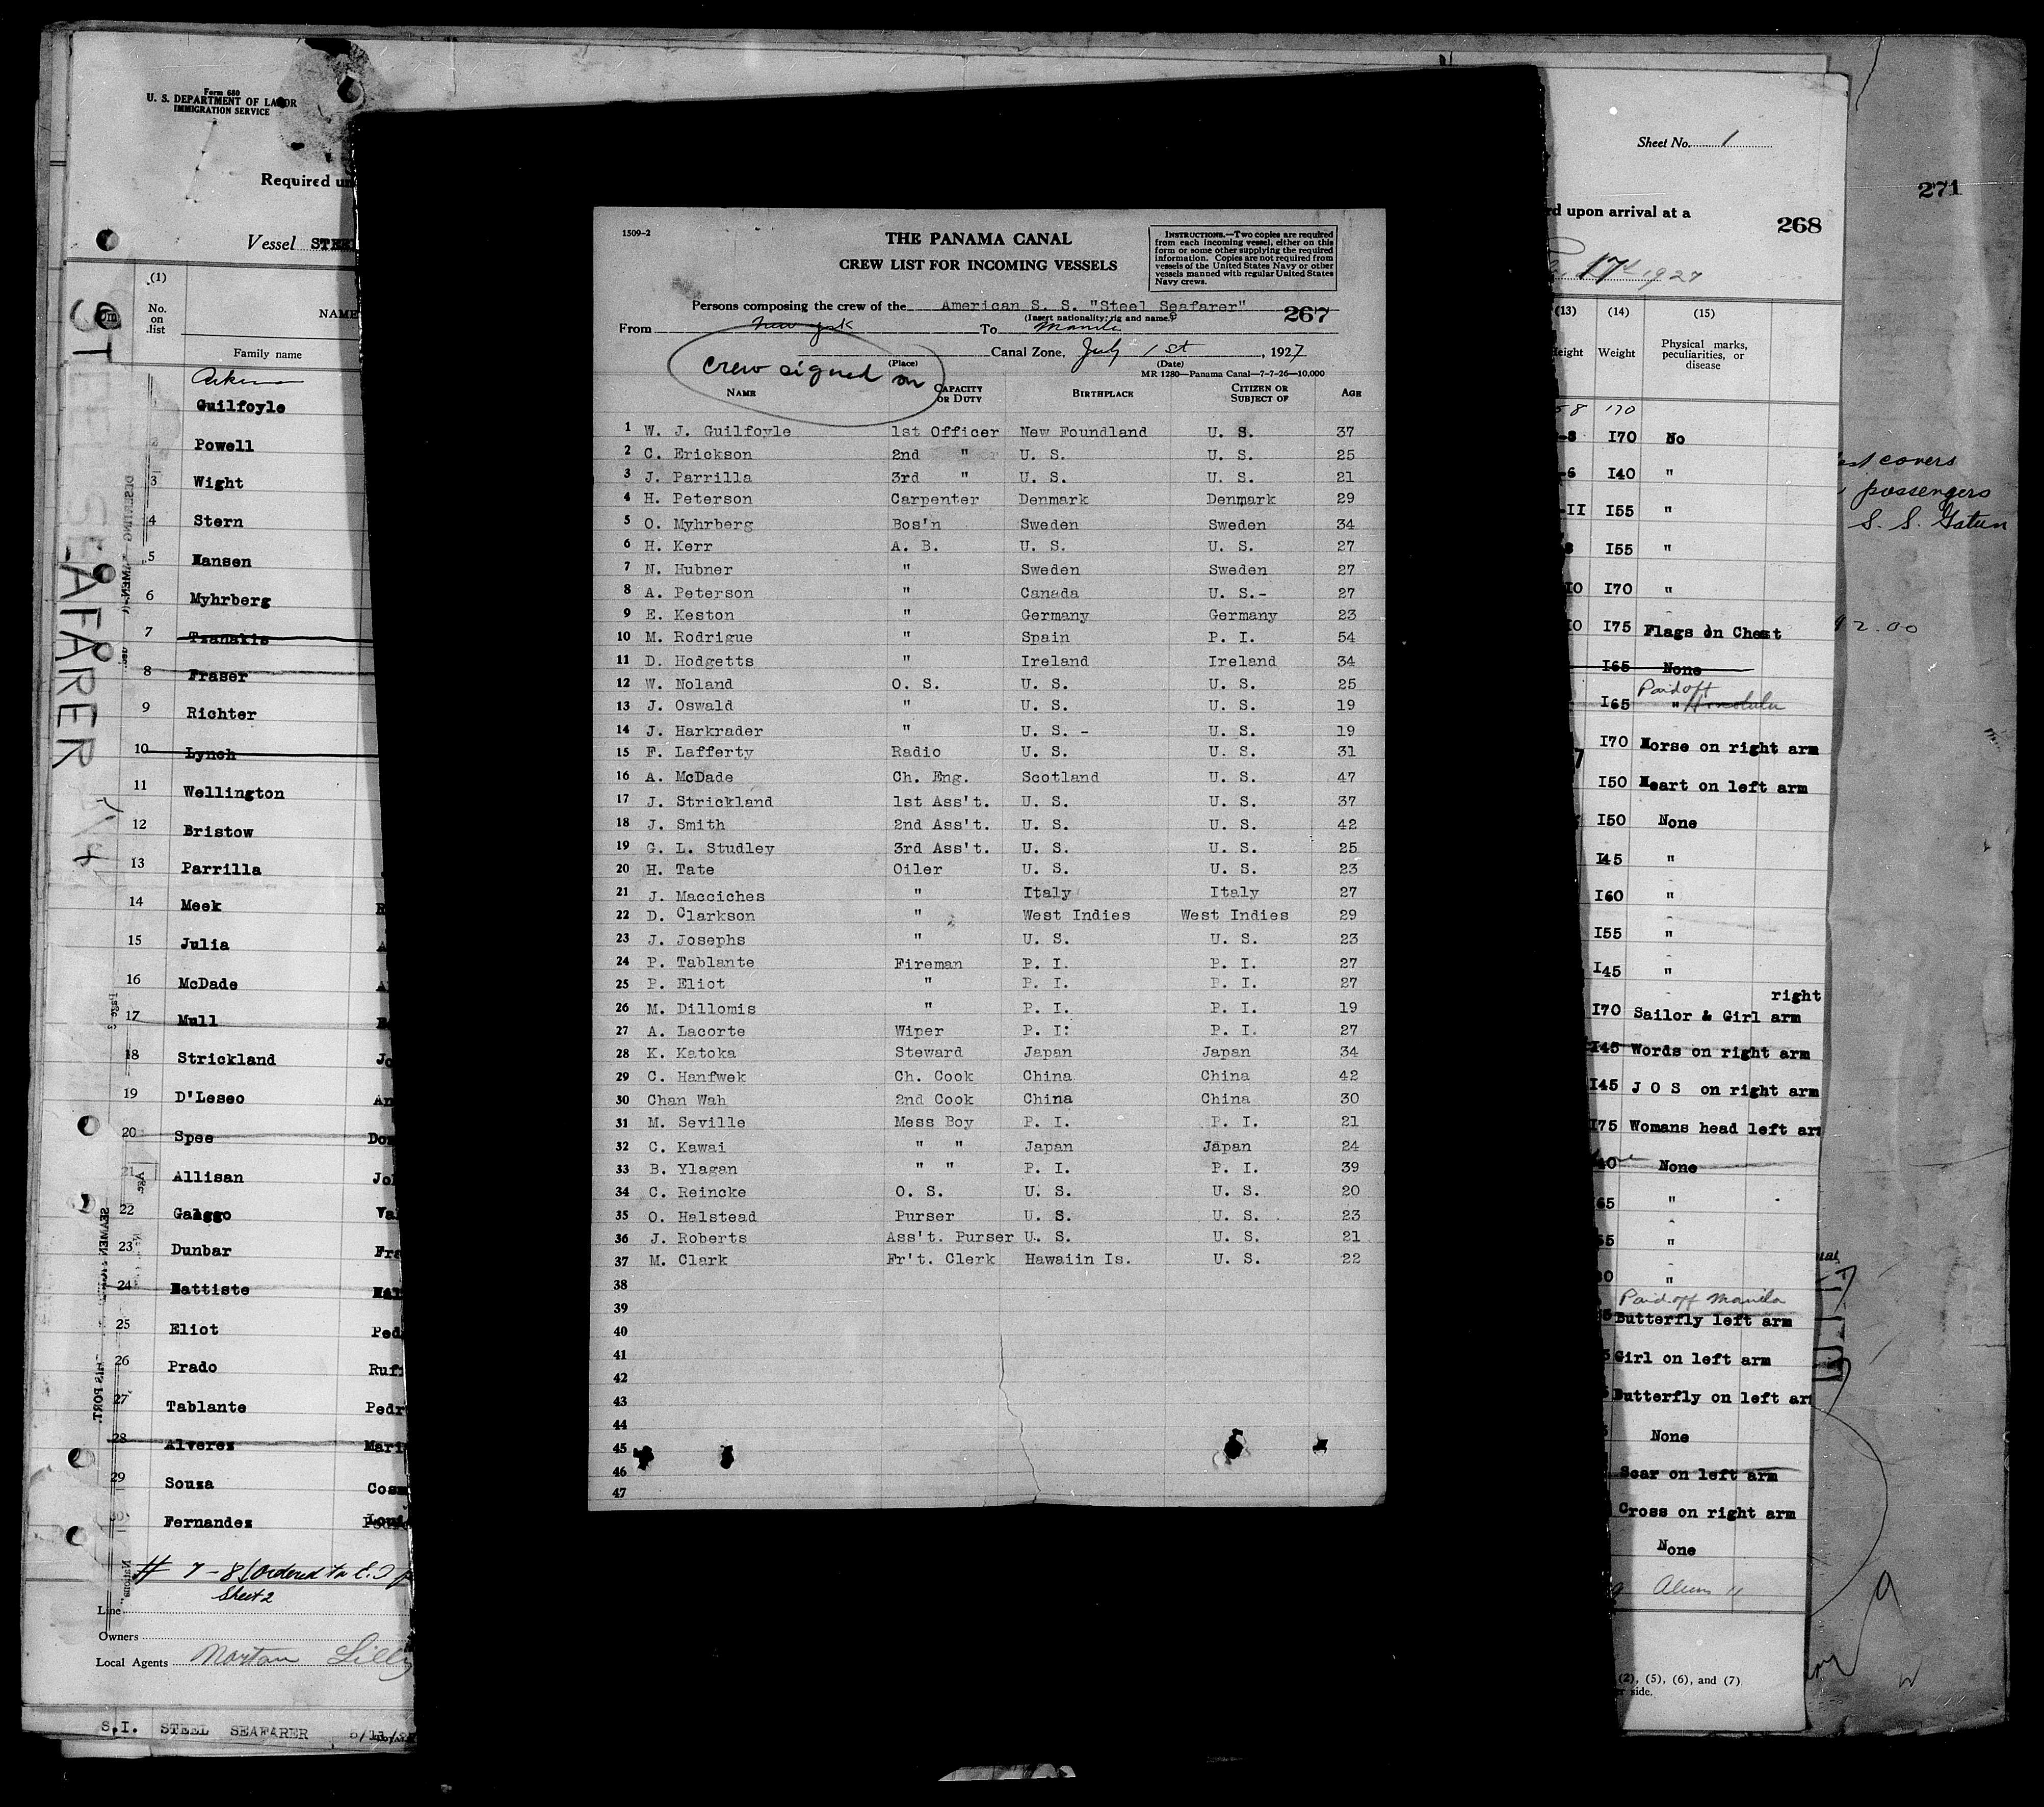 Form 680
U. S. DEPARTMENT OF LABOR
IMMIGRATION SERVICE
Required
Vessel STEEL
(1)
No. on list
NAME
Family name
Guilfoyle
Powell
3 Wight
4 Stern
5 Hansen
6 Myhrberg
7 Tzanakis
8 Fraser
9 Richter
10 Lynch
11 Wellington
12 Bristow
13 Parrilla
14 Meek
15 Julia
16 McDade
17 Mull
18 Strickland
19 D'Leseo
20 Spee
21 Allisan
22 Galggo
23 Dunbar
24 Mattiste
25 Eliot
26 Prado
27 Tablante
28 Alverez
29 Souza
30 Fernandez
# 7-8 (Ordered to E.I
Sheet 2
Line
Owners
Local Agents Norton Lilly
S.I. STEEL SEAFARER
STEEL SEAFARER
1509-2
THE PANAMA CANAL
CREW LIST FOR INCOMING VESSELS
INSTRUCTIONS.—Two copies are required
from each incoming vessel, either on this
form or some other supplying the required
information. Copies are not required from
vessels of the United States Navy or other
vessels manned with regular United States
Navy crews.
Persons composing the crew of the American S. S. "Steel Seafarer"
(Insert nationality; rig and name.)
267
From New York To Manila
Canal Zone, July 1st, 1927
(Place) (Date)
crew signed on
MR 1280—Panama Canal—7-7-26—10,000
NAME CAPACITY OR DUTY BIRTHPLACE CITIZEN OR SUBJECT OF AGE
1 W. J. Guilfoyle 1st Officer New Foundland U. S. 37
2 C. Erickson 2nd " U. S. U. S. 25
3 J. Parrilla 3rd " U. S. U. S. 21
4 H. Peterson Carpenter Denmark Denmark 29
5 O. Myhrberg Bos'n Sweden Sweden 34
6 H. Kerr A. B. U. S. U. S. 27
7 N. Hubner " Sweden Sweden 27
8 A. Peterson " Canada U. S.- 27
9 E. Keston " Germany Germany 23
10 M. Rodrigue " Spain P. I. 54
11 D. Hodgetts " Ireland Ireland 34
12 W. Noland O. S. U. S. U. S. 25
13 J. Oswald " U. S. U. S. 19
14 J. Harkrader " U. S. - U. S. 19
15 F. Lafferty Radio U. S. U. S. 31
16 A. McDade Ch. Eng. Scotland U. S. 47
17 J. Strickland 1st Ass't. U. S. U. S. 37
18 J. Smith 2nd Ass't. U. S. U. S. 42
19 G. L. Studley 3rd Ass't. U. S. U. S. 25
20 H. Tate Oiler U. S. U. S. 23
21 J. Macciches " Italy Italy 27
22 D. Clarkson " West Indies West Indies 29
23 J. Josephs " U. S. U. S. 23
24 P. Tablante Fireman P. I. P. I. 27
25 P. Eliot " P. I. P. I. 27
26 M. Dillomis " P. I. P. I. 19
27 A. Lacorte Wiper P. I: P. I. 27
28 K. Katoka Steward Japan Japan 34
29 C. Hanfwek Ch. Cook China China 42
30 Chan Wah 2nd Cook China China 30
31 M. Seville Mess Boy P. I. P. I. 21
32 C. Kawai " " Japan Japan 24
33 B. Ylagan " " P. I. P. I. 39
34 C. Reincke O. S. U. S. U. S. 20
35 O. Halstead Purser U. S. U. S. 23
36 J. Roberts Ass't. Purser U. S. U. S. 21
37 M. Clark Fr't. Clerk Hawaiin Is. U. S. 22
38
39
40
41
42
43
44
45
46
47
Sheet No. 1
upon arrival at a
268
17th 1927
(13) (14) (15)
Height Weight Physical marks, peculiarities, or disease
58 170
I70 No
I40 "
I55 "
I55 "
I70 "
I75 Flags on Chest
I65 None
Paid off
I65 " Honolulu
I70 Horse on right arm
I50 Heart on left arm
I50 None
I45 "
I60 "
I55 "
I45 "
right
I70 Sailor & Girl arm
I45 Words on right arm
I45 J O S on right arm
I75 Womans head left arm
None
"
"
"
Paid off Manila
Butterfly left arm
Girl on left arm
Butterfly on left arm
None
Scar on left arm
Cross on right arm
None
Aliens 11
(2), (5), (6), and (7)
side.
271
covers
passengers
S. S. Gatun
2.00